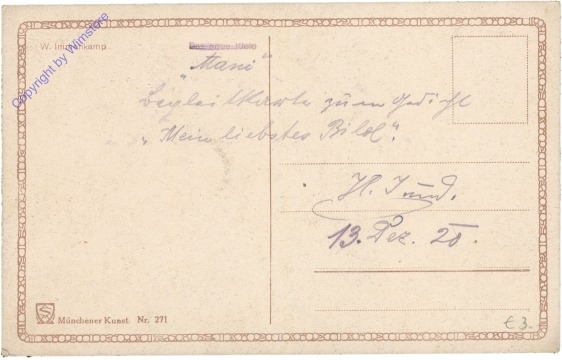 W. Immenkamp
„Mani“
Begleitkarte zum Gedicht
„Mein liebstes Bild“.
H.
13. Dez. 20.
Münchener Kunst Nr. 271
€ 3.-
Copyright by Wimstore